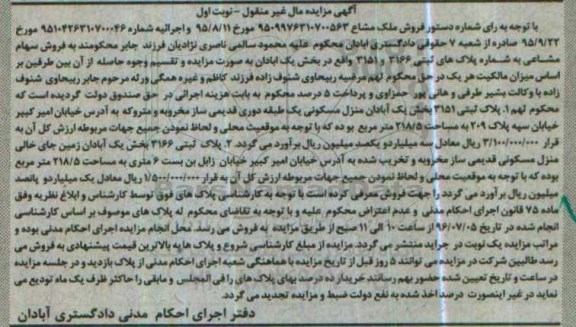 آگهی مزایده مال غیر منقول - نوبت اول
با توجه به رای شماره دستور فروش ملک مشاع ۹۵۰۹۹۷۶۳۱۰۷۰۰۵۶۳ مورخ ۹۵/۸/۱۱ و اجرائیه شماره ۹۵۱۰۴۲۶۳۱۰۷۰۰۰۴۶ مورخ
۹۵/۹/۲۲ صادره از شعبه ۷ حقوقی دادگستری آبادان محکوم علیه محمود سالمی ناصری نژادیان فرزند جابر محکومند به فروش سهام
مشاعی به شماره پلاک های ثبتی ۳۱۶۶ و ۳۱۵۱ واقع در بخش یک ابادان به صورت مزایده و تقسیم وجوه حاصله از آن بین طرفین بر
اساس میزان مالکیت هر یک در حق محکوم لهم مرضیه ربیحاوی شنوف زاده فرزند کاظم و غیره همگی ورثه مرحوم جابر ربیحاوی شنوف
زاده با وکالت بشیر طرفی و هانی پور حمزاوی و پرداخت ۵ درصد محکوم به بابت هزینه اجرائی در حق صندوق دولت گردیده است که
محکوم لهم ۱. پلاک ثبتی ۳۱۵۱ بخش یک آبادان منزل مسکونی یک طبقه دوری قدیمی ساز مخروبه و متروکه به آدرس خیابان امیر کبیر
خیابان سپه پلاک ۲۰۹ به مساحت ۲۱۸/۵ متر مربع بو ده که با توجه به موقعیت محلی و لحاظ نمودن جمیع جهات مربوطه ارزش کل آن به
قرار ۳/۱۰۰/۰۰۰/۰۰۰ ریال معادل سه میلیارد و یکصد میلیون ریال برآورد می گردد. ۲. پلاک ثبتی ۳۱۶۶ بخش یک آبادان زمین جای خالی
منزل مسکونی قدیمی ساز مخروبه و تخریب شده به آدرس خیابان امیر کبیر خیابان زابل بن بست ۶ متری به مساحت ۲۱۸/۵ متر مربع
بوده که با توجه به موقعیت محلی و لحاظ نمودن جمیع جهات مربوطه ارزش کل آن به قرار ۱/۵۰۰/۰۰۰/۰۰۰ ریال معادل یک میلیارد و پانصد
میلیون ریال بر آورد می گردد. را جهت فروش معرفی کرده است با توجه به کارشناسی پلاک های فوق توسط کارشناس و ابلاغ نظریه وفق
ماده ۷۵ قانون اجرای احکام مدنی و عدم اعتراض محکوم علیه و با توجه به تقاضای محکوم له پلاک های موصوف بر اساس کارشناسی
انجام شده در تاریخ ۹۶/۰۷/۰۵ از ساعت ۱۰ الی ۱۱ صبح از طریق مزایده به فروش می رسد. محل انجام مزایده اجرای احکام مدنی بوده و
مراتب مزایده یک نوبت در جراید منتشر می گردد. مزایده از مبلغ کارشناسی شروع و پلاک ها به بالاترین قیمت پیشنهادی به فروش می
رسد طالبین شرکت در مزایده می توانند ۵ روز قبل از تاریخ مزایده با هماهنگی شعبه اجرای احکام مدنی از پلاک بازدید و در جلسه مزایده
در ساعت و تاریخ تعیین شده حضور بهم رسانند خریدار ده درصد بهای پلاک های را فی المجلس و مابقی را حداکثر ظرف یک ماه تودیع می
نماید در غیر اینصورت درصد اخذ شده به نفع دولت ضبط و مزایده تجدید می گردد.
دفتر اجرای احکام مدنی دادگستری آبادان